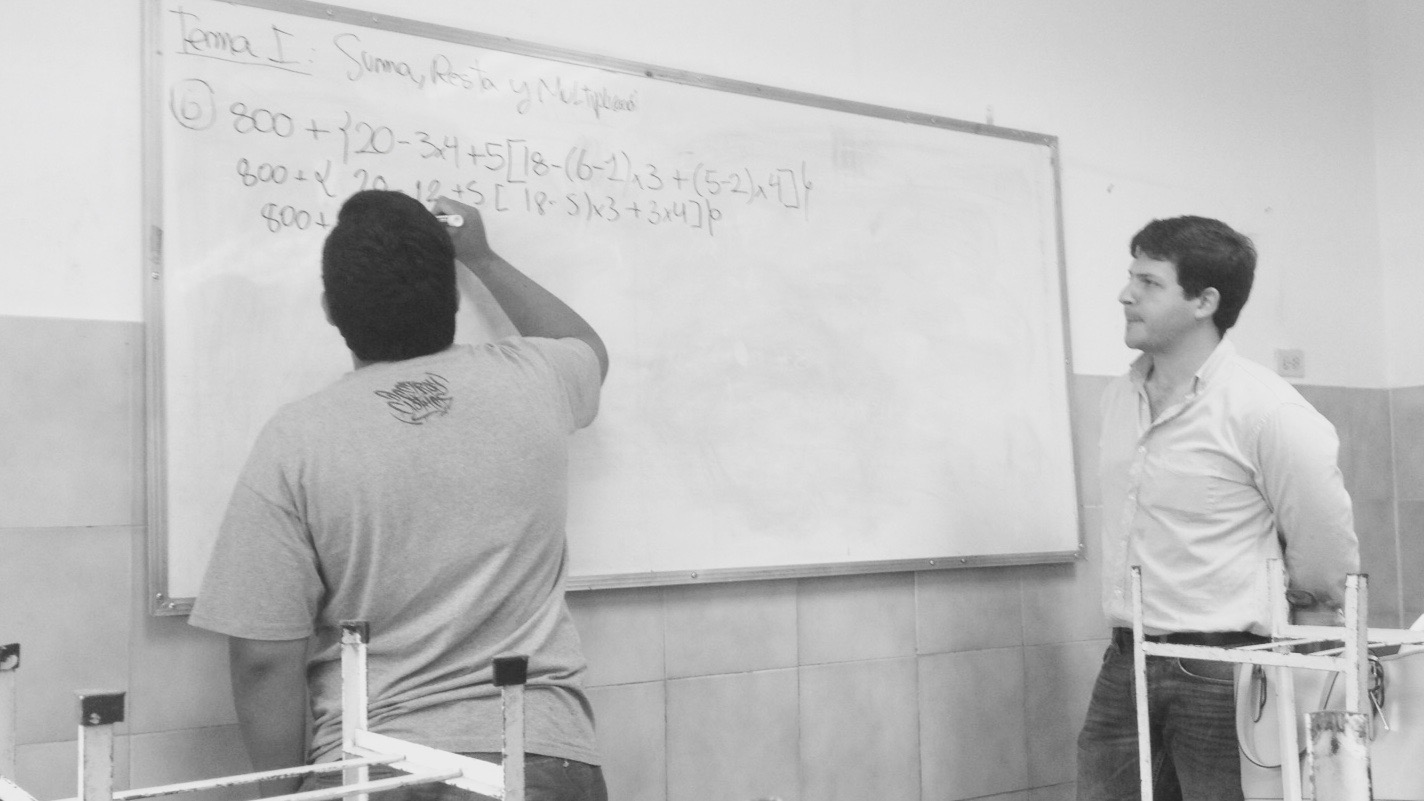 Tema I: Suma, Resta y Multiplicació
6 800 + {20 - 3x4 + 5[18-(6-1)x3 + (5-2)x4]}
800 + { 20 - 12 + 5 [ 18 - 5)x3 + 3x4]}
800 +